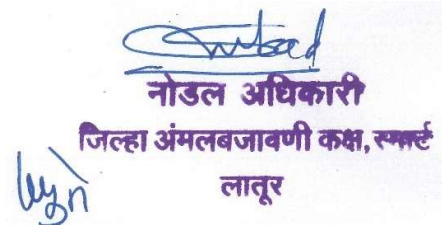 नोडल अधिकारी
जिल्हा अंमलबजावणी कक्ष, स्मार्ट
लातूर